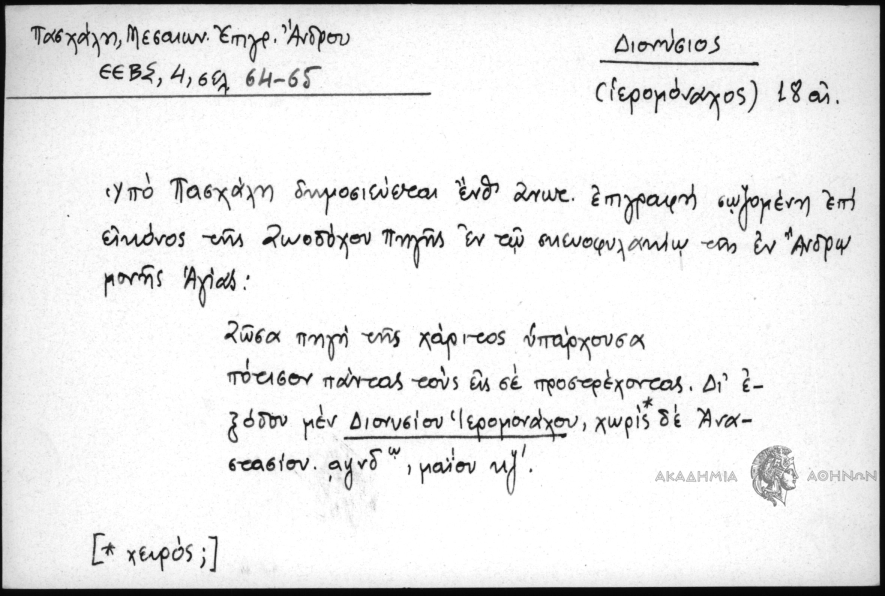 Πασχάλη, Μεσαιων. Ἐπιγρ. Ἄνδρου
ΕΕΒΣ, 4, σελ 64-65
Διονύσιος
(ἱερομόναχος) 18 αἰ.
Ὑπό Πασχάλη δημοσιεύεται ἔνθ' ἀνωτ. ἐπιγραφή σῳζομένη ἐπί
εἰκόνος τῆς Ζωοδόχου πηγῆς ἐν τῷ σκευοφυλακίῳ τῆς ἐν Ἄνδρῳ
μονῆς Ἁγίας:
Ζῶσα πηγή τῆς χάριτος ὑπάρχουσα
πότισον πάντας τούς εἰς σέ προστρέχοντας. Δι' ἐ-
ξόδου μέν Διονυσίου Ἱερομονάχου, χωρίς* δέ Ἀνα-
στασίου. ͵αψνδῳ, μαΐου κζ'.
[* χειρός;]
ΑΚΑΔΗΜΙΑ ΑΘΗΝΩΝ